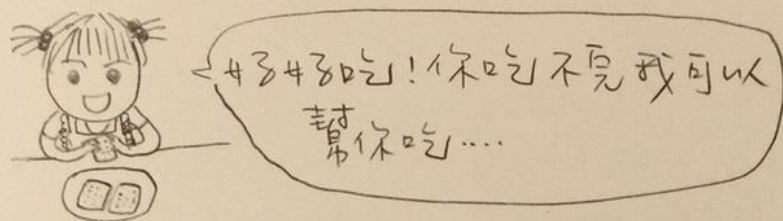 好好吃!你吃不完我可以
幫你吃....